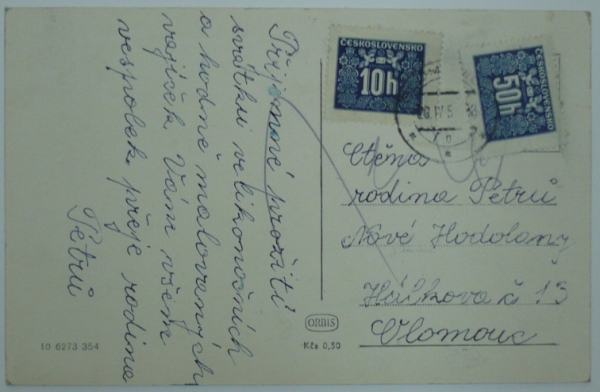 Příjemné prožití
svátků velikonočních
a hodně malovaných
vajíček Vám všem
vespolek přeje rodina
Petrů
ČESKOSLOVENSKO
10h
ČESKOSLOVENSKO
50h
Ctěná
rodina Petrů
Nové Hodolany
Hálkova č 13
Olomouc
ORBIS
Kčs 0,50
10 6273 354